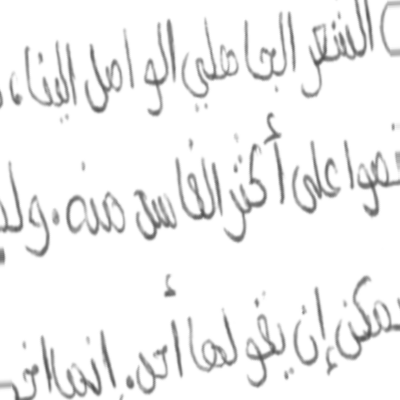 الشعر الجاهلي الواصل الينا،
على أكثر الفاسد منه. ولي
يمكن إن يقولها أحد. انما